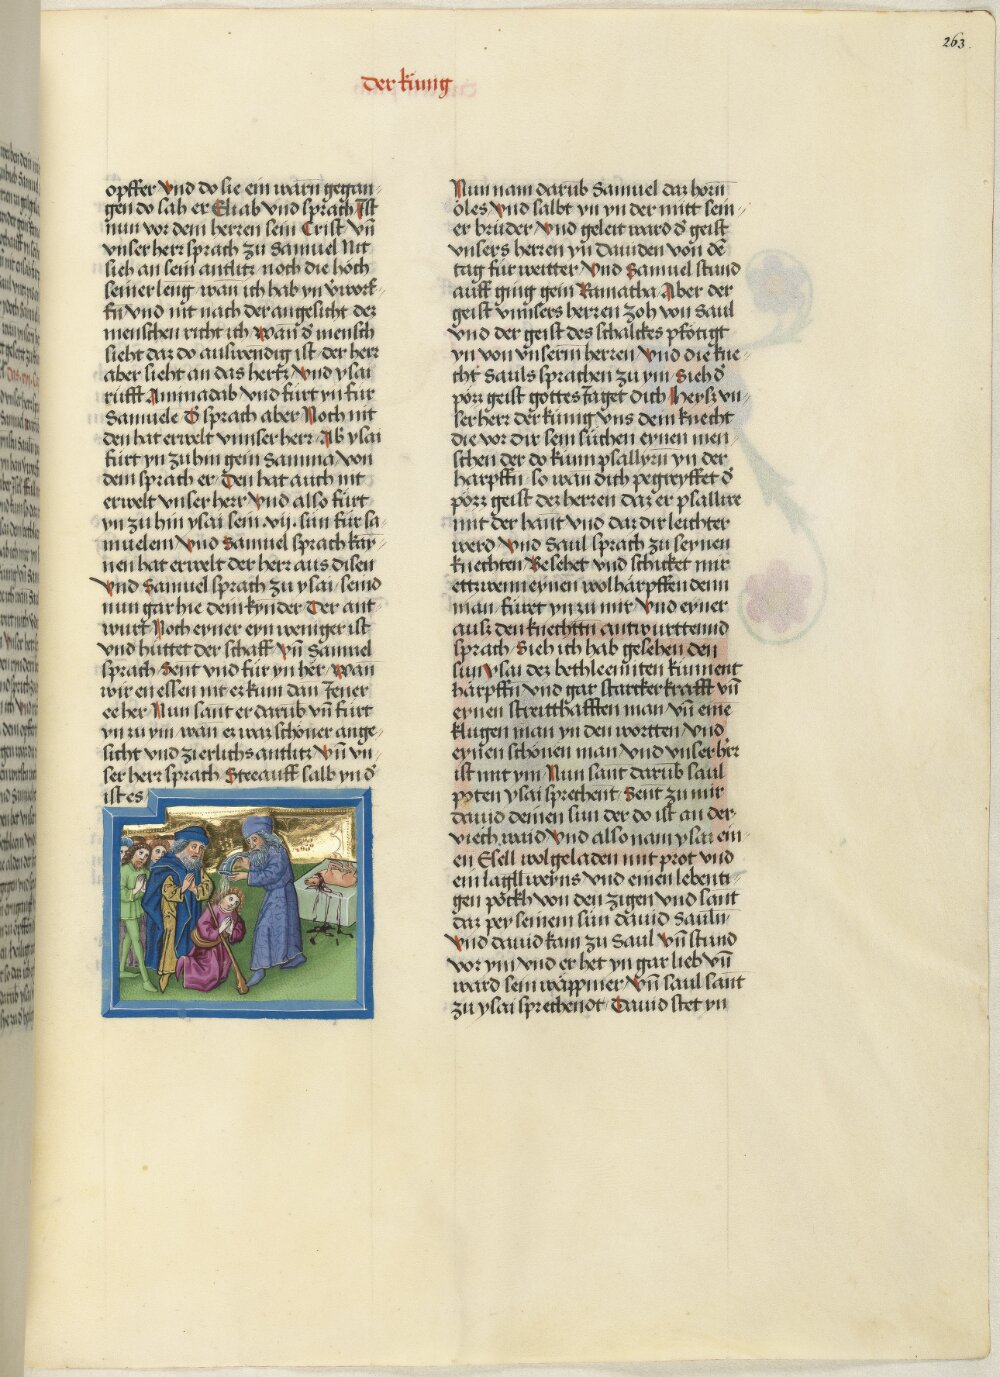 263.
der kűng
opffer vnd do sie ein warn gegan-
gen do sah er Eliab vnd sprach Ist
nun vor dem herren sein Crist vn̄
vnser herr sprach zu Samuel Nit
sieh an sein antlitz noch die höch
seiner leng wan ich hab yn v̓worf-
fn̄ vnd nit nach der angesicht der
menschen richt ich wan̄ d̓ mensch
sieht daz do auswendig ist der herr
aber sieht an das hertz vnd ysai
rüfft Aminadab vnd fürt yn für
Samuele D̓ sprach aber Noch nit
den hat erwelt vnnser herr Ab̓ ysai
fürt yn zu hin gein Samma von
dem sprach er Den hat auch nit
erwelt vnser herr vnd also fürt
yn zu hin ysai sein .vij. sün für sa-
muelem vnd Samuel sprach kay-
nen hat erwelt der herr aus disen
vnd Samuel sprach zu ysai seind
nun gar hie dein kynder Der ant-
wurt Noch eyner eyn weniger ist
vnd hüttet der schaff vn̄ Samuel
sprach Sent vnd für yn her wan
wir en essen nit er kum dan Jener
ee her Nun sant er darüb vn̄ fürt
yn zu ym wan er waz schöner ange-
sicht vnd zierlichs antlitz vn̄ vn-
ser herr sprach Stee auff salb yn d̓
ist es
Nun nam darüb Samuel daz horn
öles vnd salbt yn yn der mitt sein-
er brüder vnd geleit ward d̓ geist
vnsers herren yn dauiden von dē
tag für weitter vnd Samuel stund
auff ging gein Ramatha Aber der
geist vnnsers herren zoh von Saul
vnd der geist des schalckes pfötigt
yn von vnserm herren vnd die kne-
cht Sauls sprachen zu ym Sieh d̓
pözz geist gottes faget dich Heysz vn-
ser herr der künig vns dein knecht
die vor dir sein süchen eynen men-
schen der do künn psallyrn̄ yn der
harpffn̄ so wan dich pegreyffet d̓
pözz geist dez herren daz er psallire
mit der hant vnd daz dir leichter
werd vnd Saul sprach zu seynen
knechten Besehet vnd schicket mir
ettwenn eynen wol harpffenden
man fürt yn zu mir vnd eyner
ausz den knechttn antwurttennd
sprach Sieh ich hab gesehen den
sun ysai dez bethleemiten kunnent
harpffn̄ vnd gar starcker krafft vn̄
eynen streitthafften man vn̄ eine
klugen man yn den wortten vnd
eynen schönen man vnd vnser h̓rr
ist mit ym Nun sant darüb saul
poten ysai sprechent Sent zu mir
dauid deinen sun der do ist an der
viech waid vnd also nam ysai ein-
en Esell wolgeladen mit prot vnd
ein lagll weyns vnd einen lebenti-
gen pöckh von den zigen vnd sant
daz per seinem sun dauid Sauln
vnd dauid kam zu Saul vn̄ stund
vor ym vnd er het yn gar lieb vn̄
ward sein wäppner vn̄ saul sant
zu ysai sprechendt Dauid stet yn